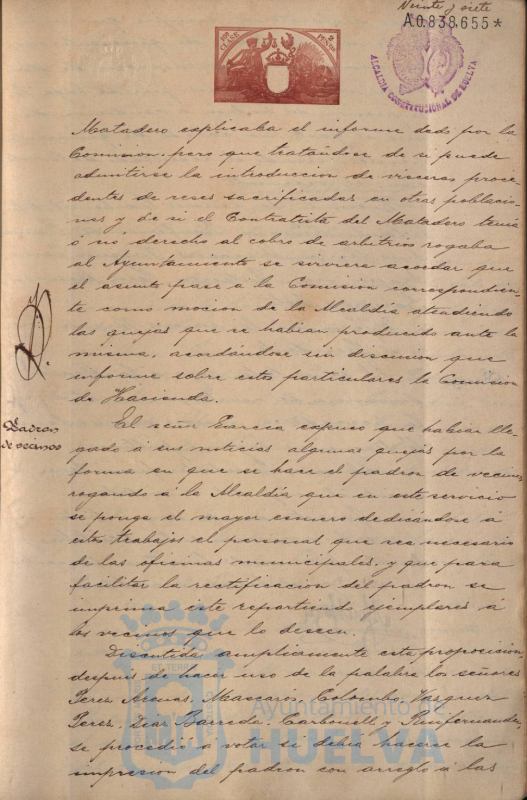 Veinte y siete
A.0.838.655*
CLASE 10ª
2 PESETAS
ALCALDIA CONSTITUCIONAL DE HUELVA
Matadero esplicaba el informe dado por la
Comision, pero que tratándose de si puede
admitirse la introduccion de vísceras proce
dentes de reses sacrificadas en otras poblacio
nes y de si el Contratista del Matadero tenia
ó no derecho al cobro de arbitrios rogaba
al Ayuntamiento se sirviera acordar que
el asunto pase á la Comision correspondien
te como mocion de la Alcaldia atendiendo
las quejas que se habian producido ante la
misma, acordándose sin discusion que
informe sobre estos particulares la Comision
de Hacienda.
Padron
de vecinos
El señor Garcia espuso que habian lle
gado á sus noticias algunas quejas por la
forma en que se hace el padron de vecinos
rogando á la Alcaldía que en este servicio
se ponga el mayor esmero dedicándose á
estos trabajos el personal que sea necesario
de las oficinas municipales, y que para
facilitar la rectificacion del padron se
imprima este repartiendo ejemplares á
los vecinos que lo deseen.
Discutida ampliamente esta proposicion
despues de hacer uso de la palabra los señores
Perez Arenas, Mascarós, Colombo, Vazquez
Perez, Diaz Barreda, Carbonell y Ruifernandez
se procedió á votar si debia hacerse la
impresion del padron con arreglo á las
Ayuntamiento de
HUELVA